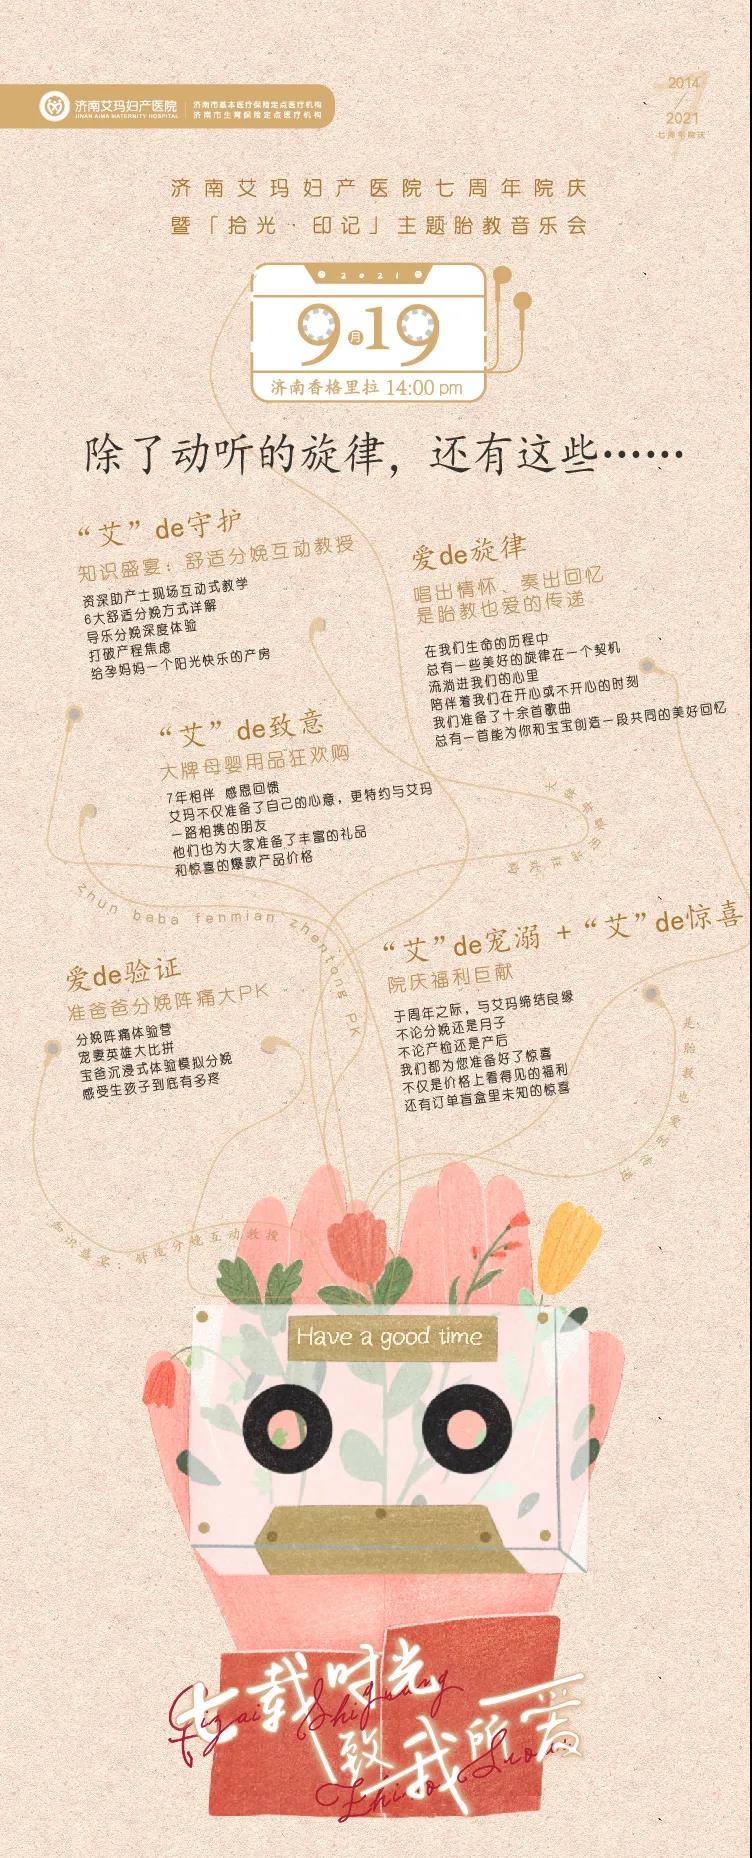 济南艾玛妇产医院
JINAN AIMA MATERNITY HOSPITAL
济南市基本医疗保险定点医疗机构
济南市生育保险定点医疗机构
2014
2021
七周年院庆
济南艾玛妇产医院七周年院庆
暨「拾光·印记」主题胎教音乐会
2021
9月19
济南香格里拉 14:00 pm
除了动听的旋律，还有这些……
“艾”de守护
知识盛宴：舒适分娩互动教授
资深助产士现场互动式教学
6大舒适分娩方式详解
导乐分娩深度体验
打破产程焦虑
给孕妈妈一个阳光快乐的产房
爱de旋律
唱出情怀、奏出回忆
是胎教也爱的传递
在我们生命的历程中
总有一些美好的旋律在一个契机
流淌进我们的心里
陪伴着我们在开心或不开心的时刻
我们准备了十余首歌曲
总有一首能为你和宝宝创造一段共同的美好回忆
“艾”de致意
大牌母婴用品狂欢购
7年相伴 感恩回馈
艾玛不仅准备了自己的心意，更特约与艾玛
一路相携的朋友
他们也为大家准备了丰富的礼品
和惊喜的爆款产品价格
大牌母婴用品狂欢购
zhun baba fenmian zhentong PK
爱de验证
准爸爸分娩阵痛大PK
分娩阵痛体验营
宠妻英雄大比拼
宝爸沉浸式体验模拟分娩
感受生孩子到底有多疼
“艾”de宠溺 + “艾”de惊喜
院庆福利巨献
于周年之际，与艾玛缔结良缘
不论分娩还是月子
不论产检还是产后
我们都为您准备好了惊喜
不仅是价格上看得见的福利
还有订单盲盒里未知的惊喜
是胎教也爱的传递
知识盛宴：舒适分娩互动教授
Have a good time
七载时光
Qizai Shiguang
致我所爱